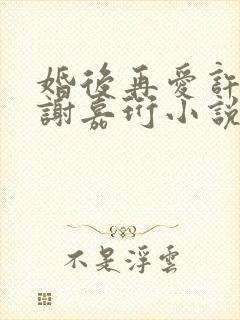 婚後再愛許
謝嘉珩小說
不是浮雲